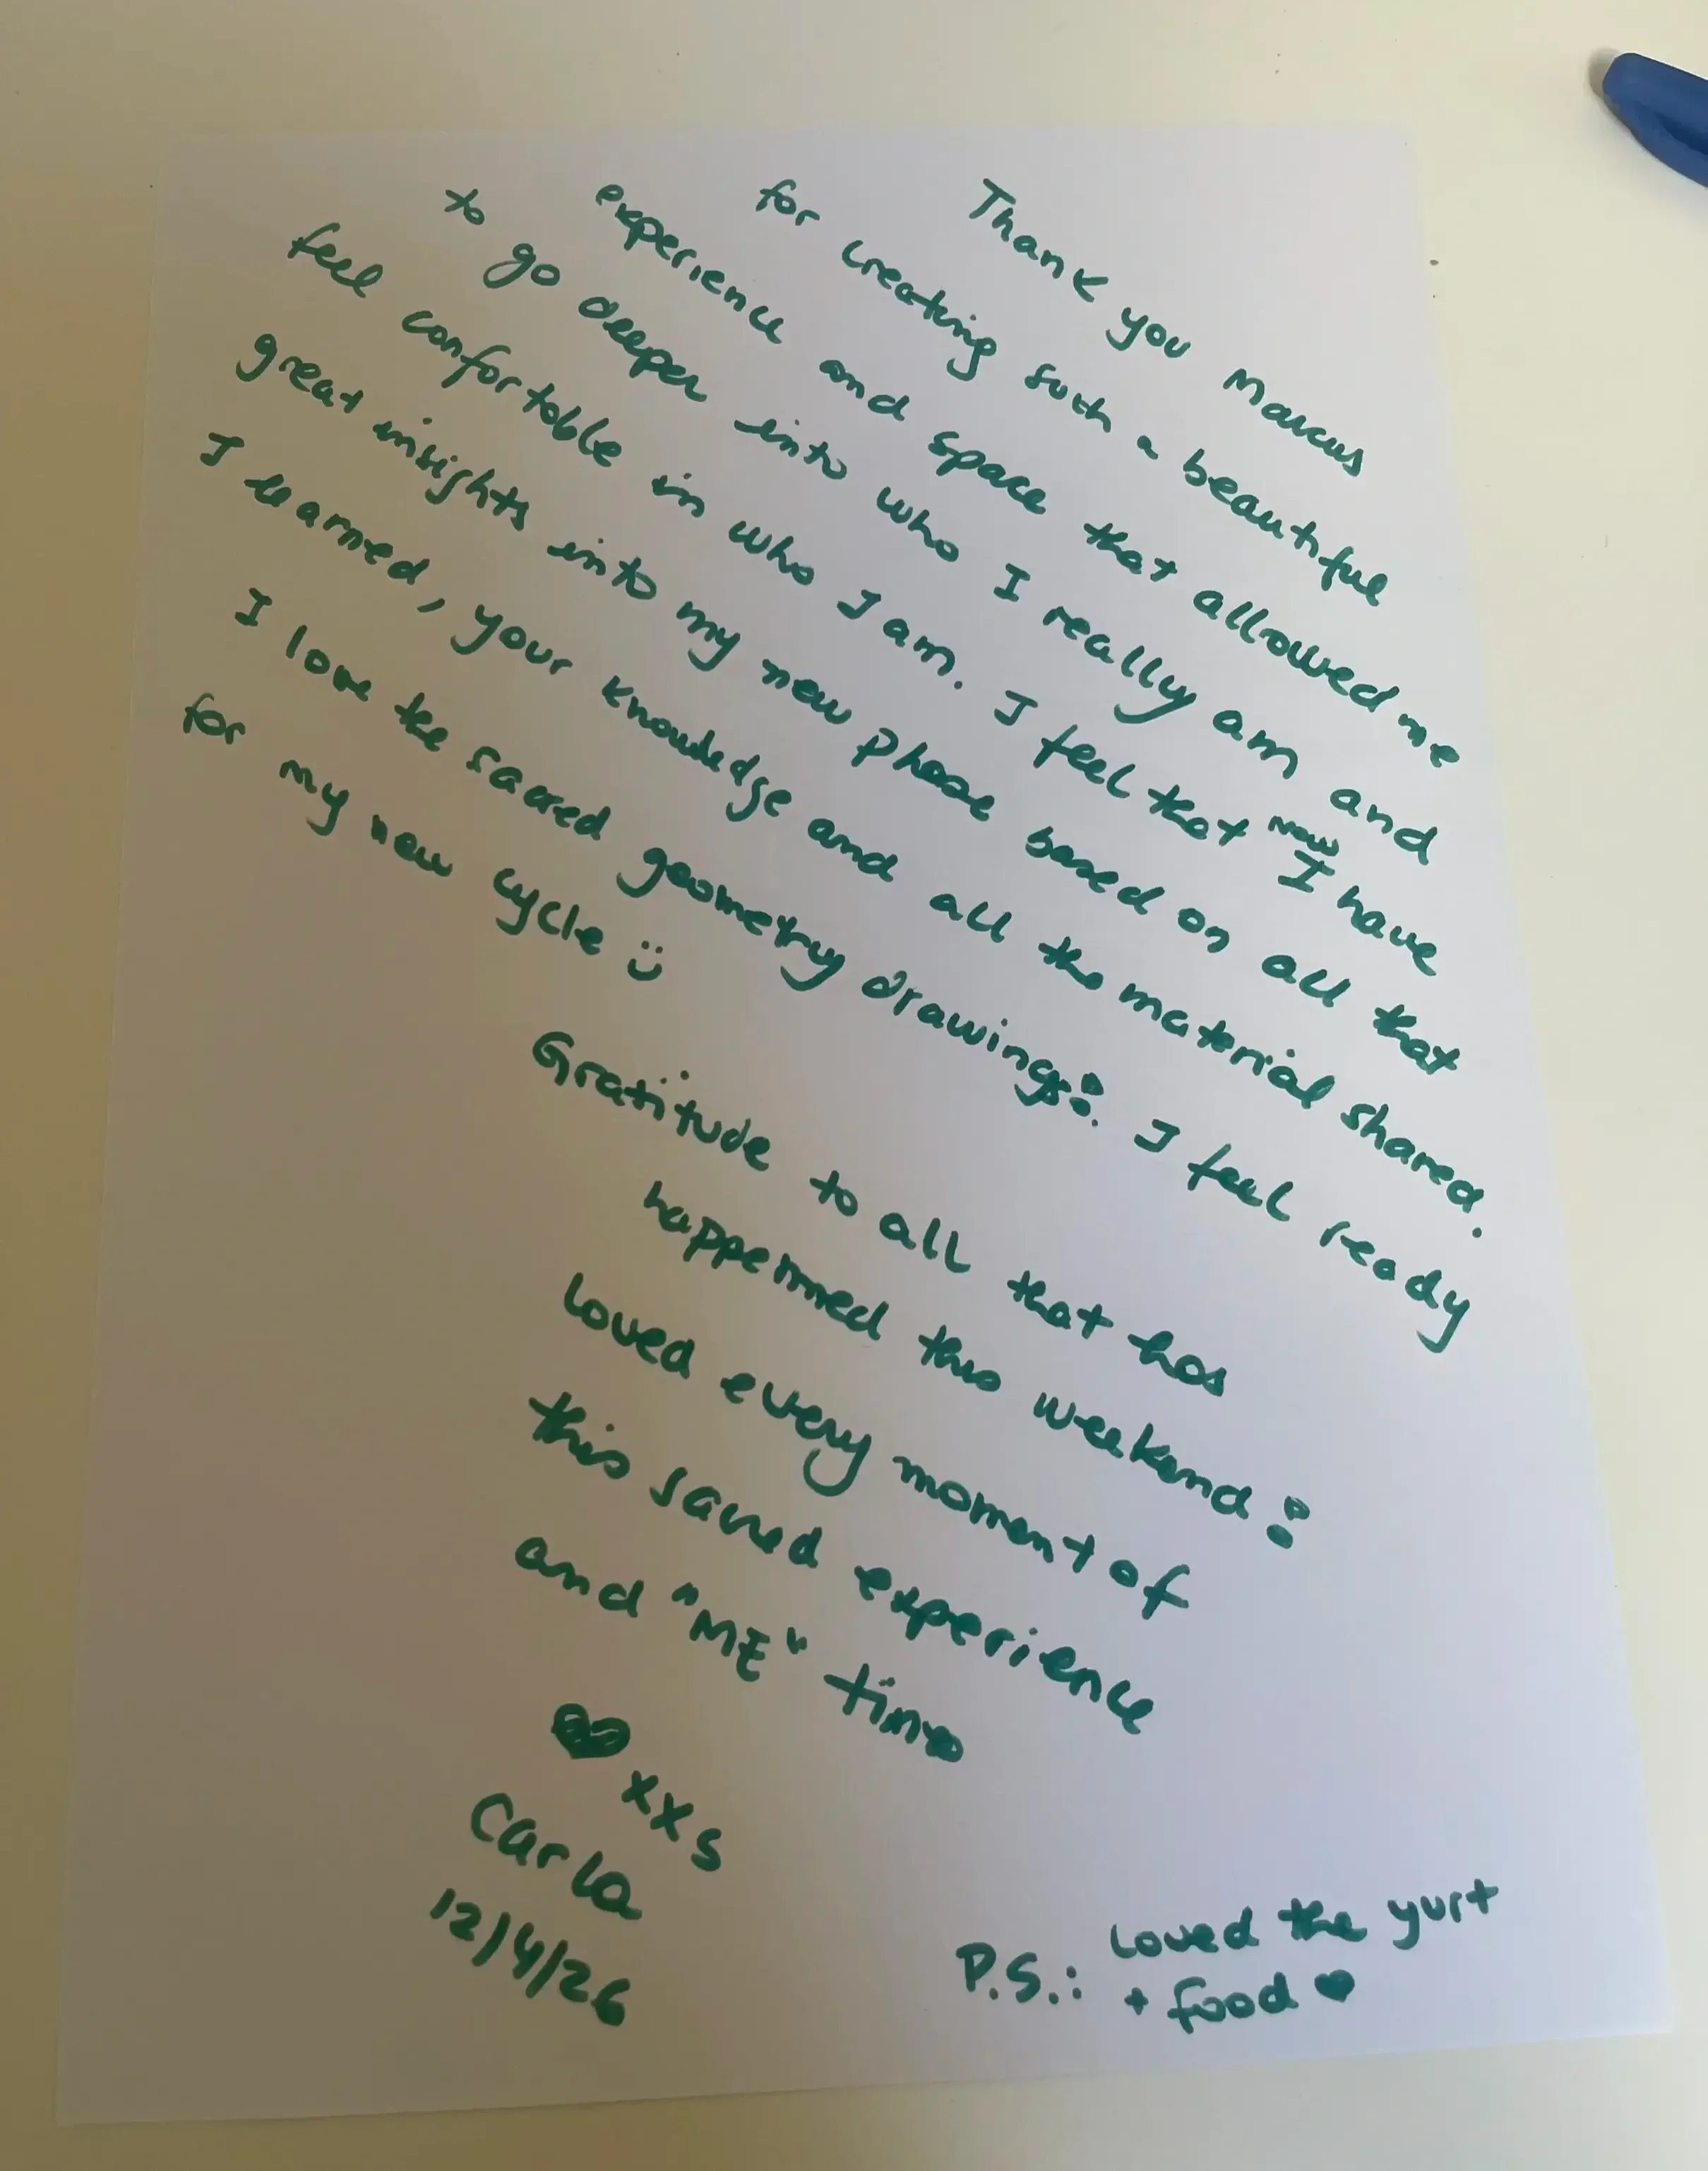 Thank you Marcus
for creating such a beautiful
experience and space that allowed me
to go deeper into who I really am and
feel confortable in who I am. I feel that now I have
great insights into my new phase based on all that
I learned, your knowledge and all the material shared.
I love the sacred geometry drawings!. I feel ready
for my new cycle :)
Gratitude to all that has
happenned this weekend!
Loved every moment of
this sacred experience
and "ME" time
♥ xxs
Carla
12/4/26
P.S.: Loved the yurt
+ food ♥